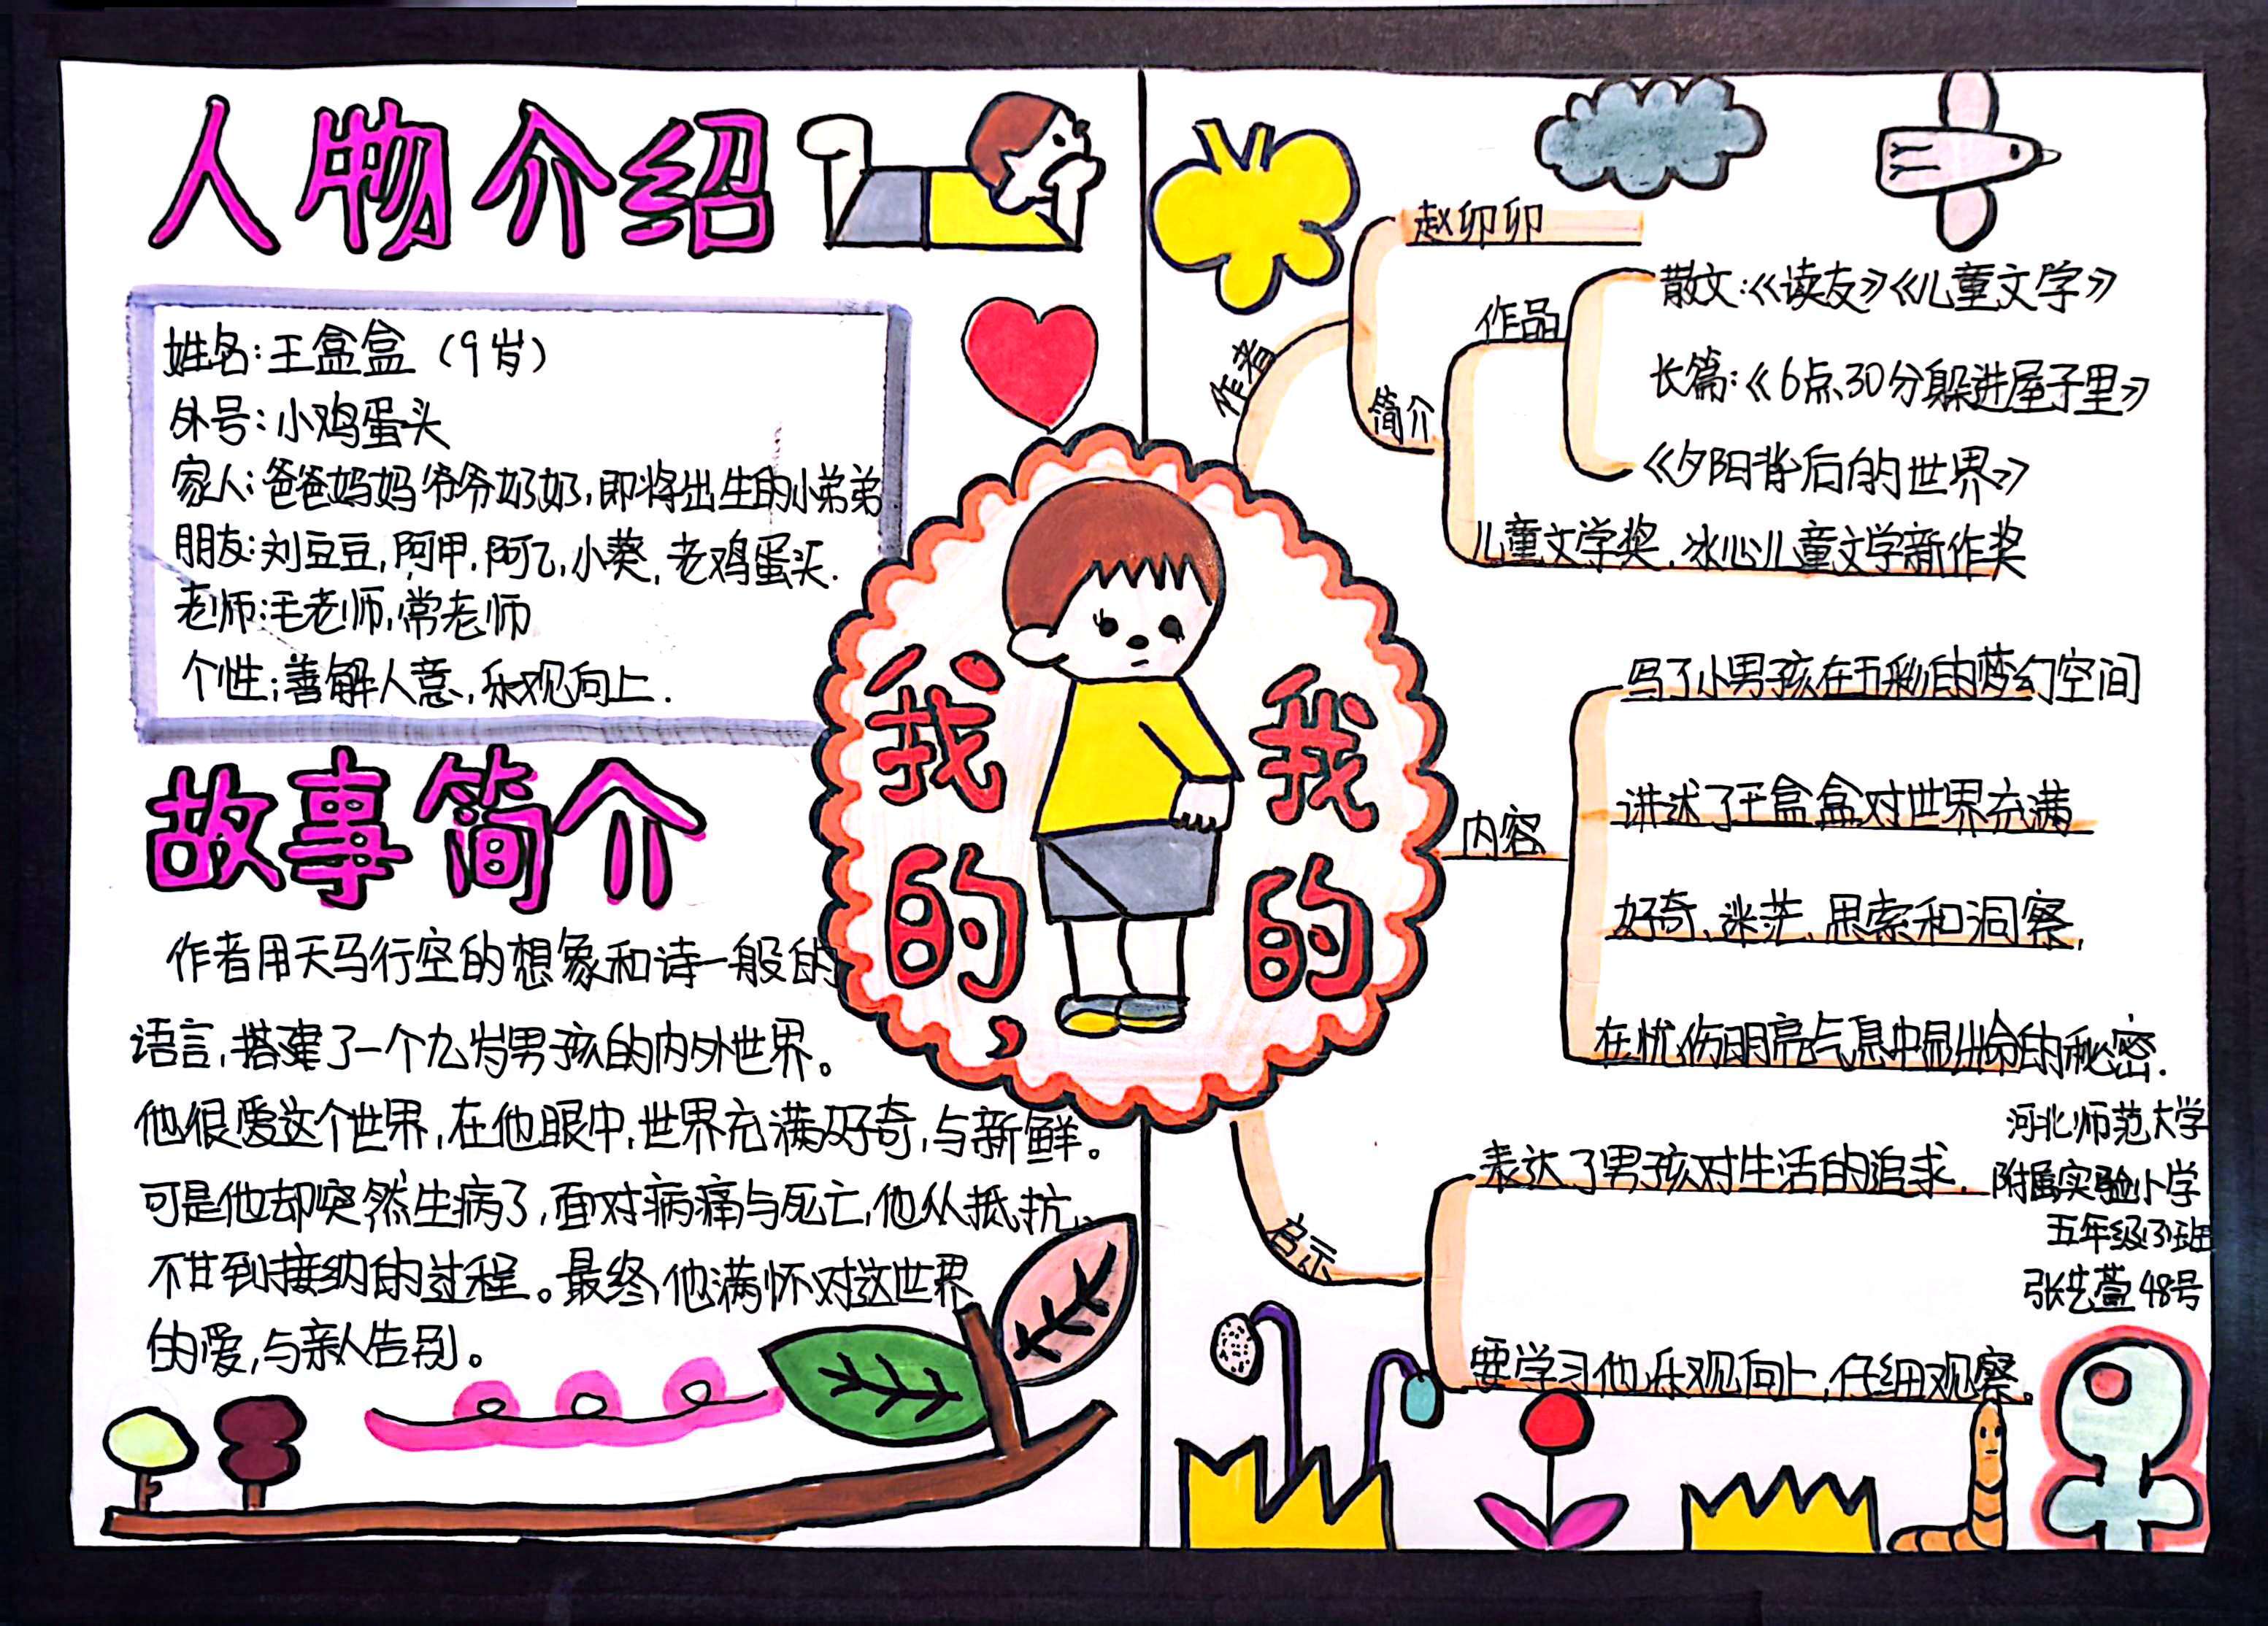 人物介绍
姓名:王盒盒(9岁)
外号:小鸡蛋头
家人:爸爸妈妈爷爷奶奶,即将出生的小弟弟
朋友:刘豆豆,阿甲,阿乙,小葵,老鸡蛋头.
老师:毛老师,常老师
个性;善解人意,乐观向上.
故事简介
作者用天马行空的想象和诗一般的
语言,搭建了一个九岁男孩的内外世界。
他很爱这个世界,在他眼中,世界充满好奇,与新鲜。
可是他却突然生病了,面对病痛与死亡,他从抵抗、
不甘到接纳的过程。最终他满怀对这世界
的爱,与亲人告别。
我的,
我的
作者
赵卯卯
简介
作品
散文:《读友》《儿童文学》
长篇:《6点30分躲进屋子里》
《夕阳背后的世界》
儿童文学奖,冰心儿童文学新作奖
内容
写了小男孩在五彩的梦幻空间
讲述了王盒盒对世界充满
好奇、迷茫、思索和洞察,
在忧伤明亮气息中显出命的秘密.
启示
表达了男孩对生活的追求.
要学习他乐观向上,仔细观察。
河北师范大学
附属实验小学
五年级(3)班
张艺萱48号